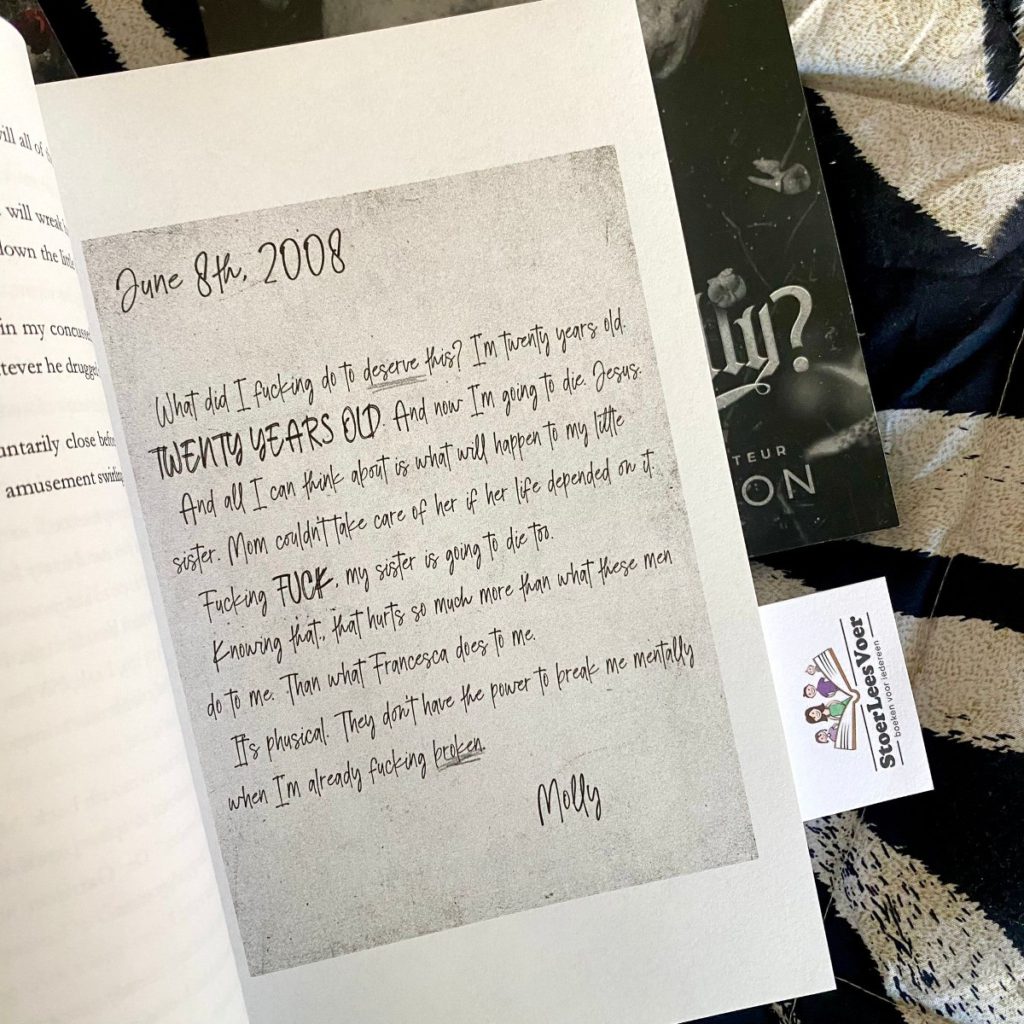 will all of
will wreak
down the little
in my
he drugged
close before
amusement swirling
June 8th, 2008
What did I fucking do to deserve this? I'm twenty years old.
TWENTY YEARS OLD. And now I'm going to die. Jesus.
And all I can think about is what will happen to my little
sister. Mom couldn't take care of her if her life depended on it.
Fucking FUCK, my sister is going to die too.
Knowing that, that hurts so much more than what these men
do to me. Than what Francesca does to me.
It's phusical. They don't have the power to break me mentally
when I'm already fucking broken.
Molly
?
TEUR
ON
StoerLeesVoer
boeken voor iedereen